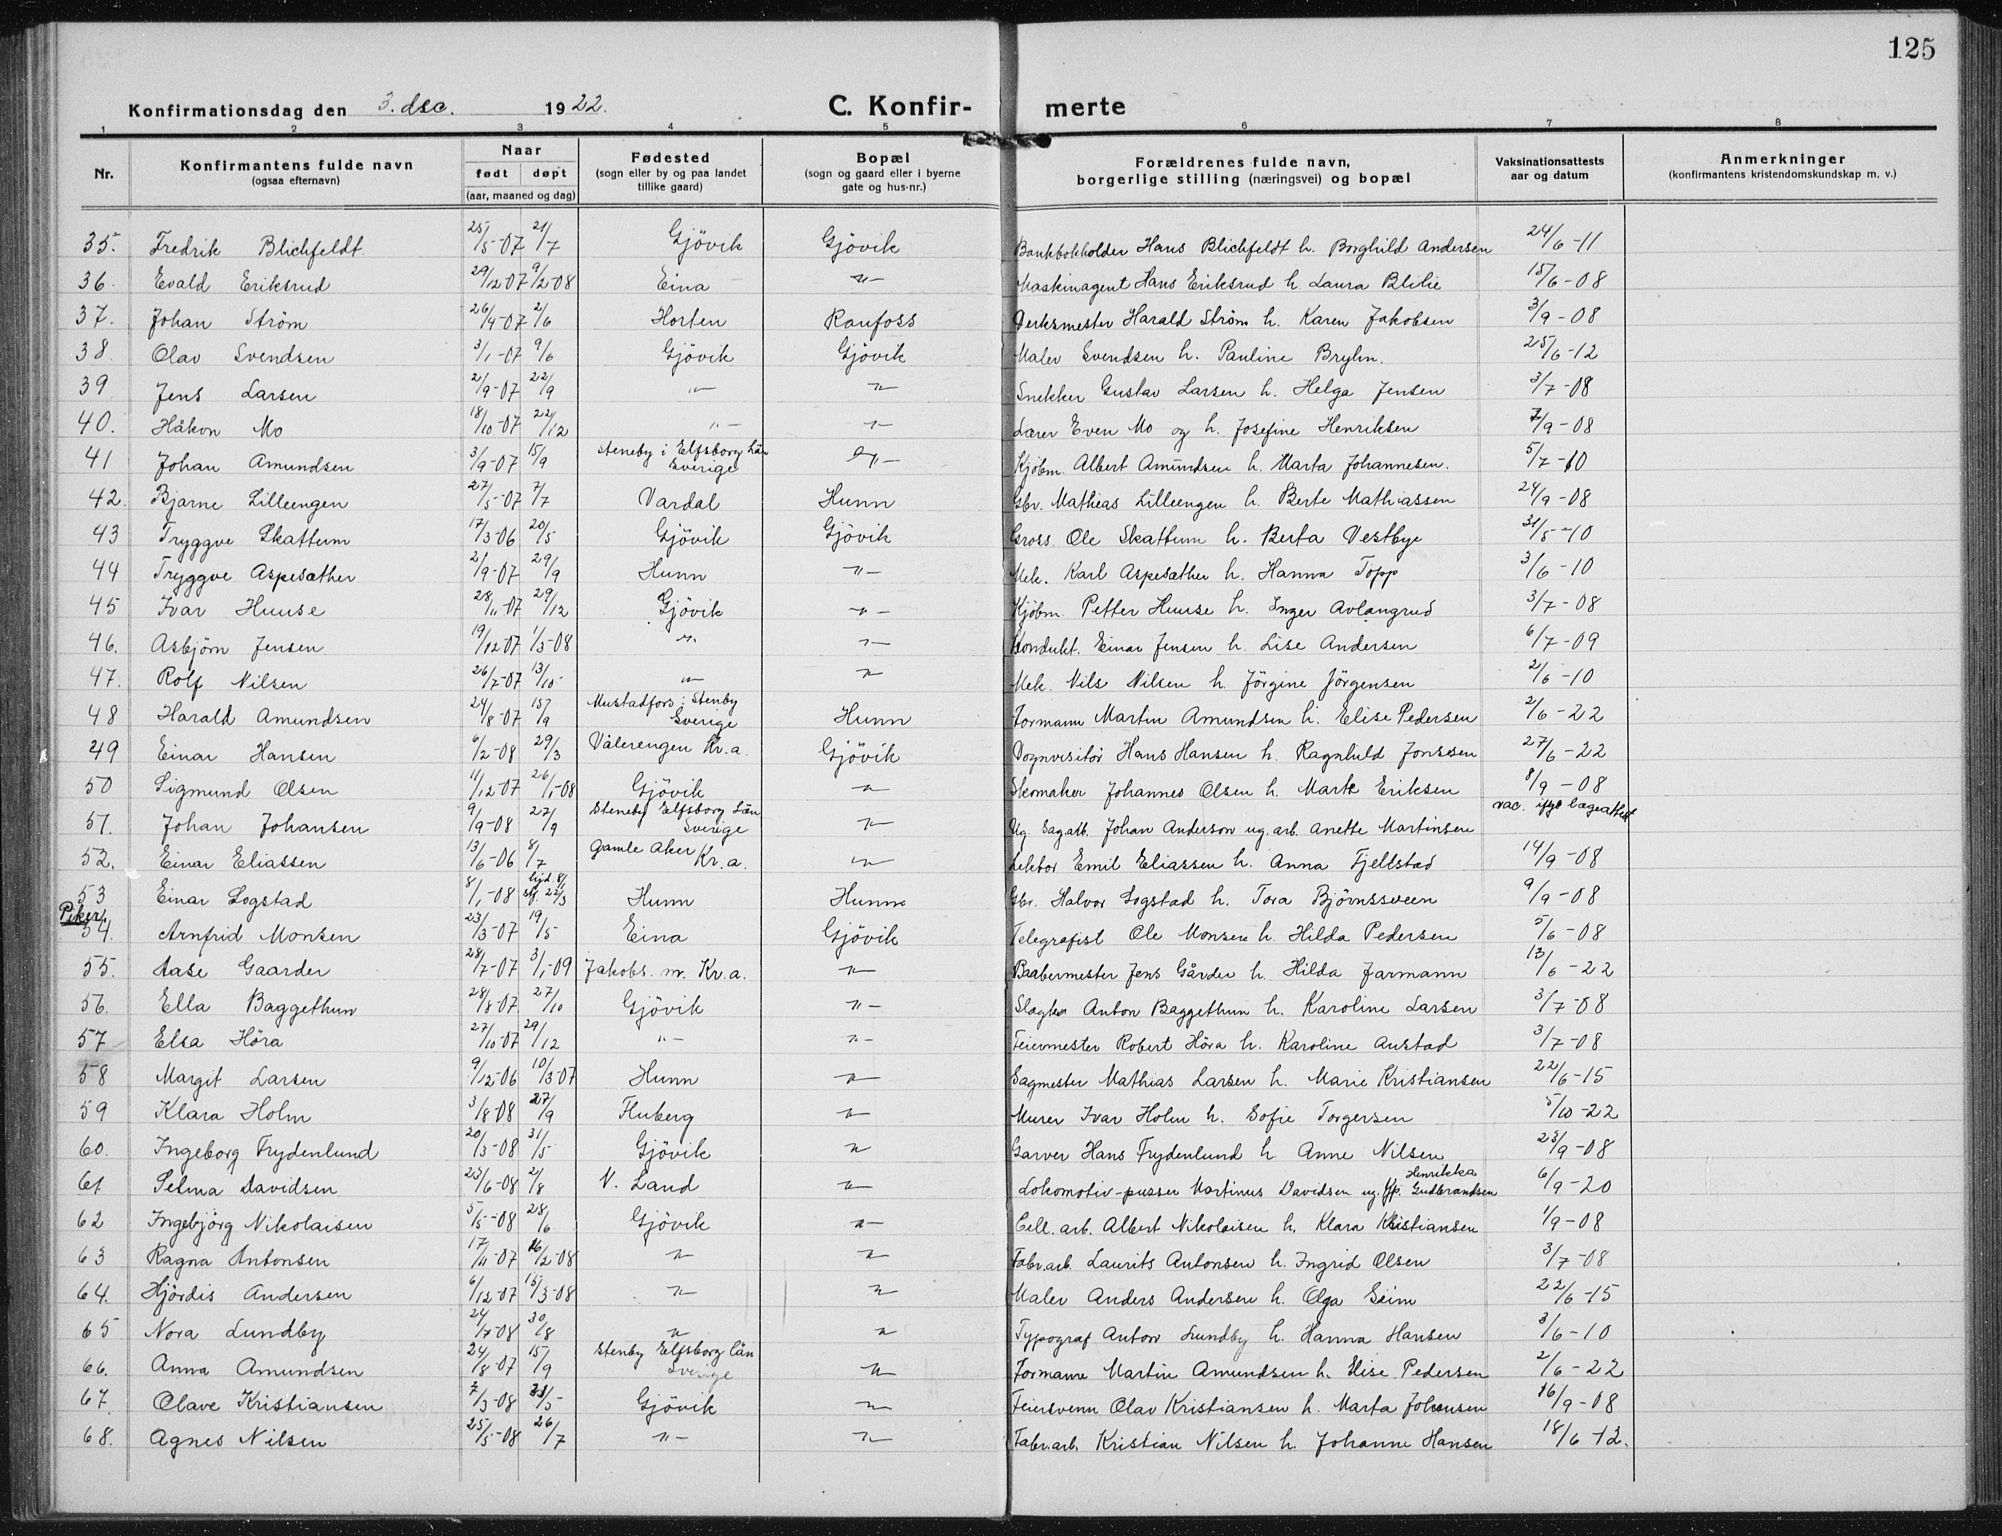 125
Konfirmationsdag den 3. dec. 1922. C. Konfir- merte
1 2 3 4 5 6 7 8
Nr. Konfirmantens fulde navn (ogsaa efternavn) Naar født døpt (aar, maaned og dag) Fødested (sogn eller by og paa landet tillike gaard) Bopæl (sogn og gaard eller i byerne gate og hus-nr.) Forældrenes fulde navn, borgerlige stilling (næringsvei) og bopæl Vaksinationsattests aar og datum Anmerkninger (konfirmantens kristendomskundskap m. v.)
35. Fredrik Blichfeldt 25/5-07 21/7 Gjövik Gjövik Bankbokholder Hans Blichfeldt h. Borghild Andersen 24/6-11
36. Evald Eriksrud 29/12 07 9/2-08 Eina -"- Maskinagent Hans Eriksrud h. Laura Blilie 15/6-08
37. Johan Ström 26/4-07 2/6 Horten Raufoss Verksmester Harald Ström h. Karen Jakobsen 3/9-08
38 Olav Svendsen 3/1-07 9/6 Gjövik Gjövik Maler Svendsen h. Pauline Bryhn. 25/6-12
39 Jens Larsen 2/9-07 22/9 -"- -"- Snekker Gustav Larsen h. Helga Jensen 3/7-08
40. Håkon Mo 18/10-07 22/12 "- -"- Lærer Even Mo og h. Josefine Henriksen 7/9-08
41 Johan Amundsen 3/9-07 15/9 Steneby i Elfsborg län Sverige -"- Kjøbm. Albert Amundsen h. Marta Johannesen. 5/7-10
42. Bjarne Lilleengen 27/5-07 7/7 Vardal Hunn Gbr. Mathias Lilleengen h. Berte Mathiassen 24/9-08
43 Tryggve Skattum 17/3-06 20/5 Gjövik Gjövik Gross. Ole Skattum h. Berta Vestbye 31/5-10
44 Tryggve Aspesæther 21/9-07 29/9 Hunn -"- Mek. Karl Aspesæther h. Hanna Topp 3/6-10
45 Ivar Huuse 28/11-07 29/12 Gjövik -"- Kjöbm. Petter Huuse h. Inger Avlangrud 3/7-08
46. Asbjörn Jensen 19/12 07 1/3-08 -"- -"- Kondukt. Einar Jensen h. Lise Andersen 6/7-09
47. Rolf Nilsen 26/7-07 13/10 -"- -"- Mek. Nils Nilsen h. Jörgine Jörgensen 2/6-10
48 Harald Amundsen 24/8-07 15/9 Mustadfors i Stenby Sverige Hunn Formann Martin Amundsen h. Elise Pedersen 2/6-22
49 Einar Hansen 6/2-08 29/3 Vålerengen Kr.a. Gjövik Vognvisitör Hans Hansen h. Ragnhild Jonssen 27/6-22
50 Sigmund Olsen 11/12 07 26/1-08 Gjövik -"- Skomaker Johannes Olsen h. Marte Eriksen 8/9-08
51. Johan Johansen 9/9-08 27/9 Steneby Elfsborg Län Sverige -"- Ug. Sagarb. Johan Anderson ug. arb. Anette Martinsen vac. ifgl lægeattest
52. Einar Eliassen 13/6-06 8/7 Gamle Aker Kr.a. -"- Lektor Emil Eliassen h. Anna Fjellstad 14/9-08
53 Einar Sogstad 8/1-08 hjd. 8/1 stf. 22/3 Hunn Hunn Gbr. Halvor Sogstad h. Tora Bjørnssveen 9/9-08
Piker
54. Arnfrid Monsen 23/3-07 19/5 Eina Gjövik Telegrafist Ole Monsen h. Hilda Pedersen 5/6-08
55. Aase Gaarder 28/7-07 3/1-09 Jakobs. m. Kr.a. -"- Jens Gårder h. Hilda Jarmann 13/6-22
56. Ella Baggethun 28/8 07 27/10 Gjövik -"- Slagter Anton Baggethun h. Karoline Larsen 3/7-08
57 Elsa Höra 27/10-07 29/12 "- -"- Feiermester Robert Höra h. Karoline Austad 3/7-08
58 Margit Larsen 9/12-06 10/3-07 Hunn -"- Sagmester Mathias Larsen h. Marie Kristiansen 22/6-15
59 Klara Holm 3/8 08 27/9 Fluberg -"- Murer Ivar Holm h. Sofie Torgersen 5/10-22
60. Ingeborg Frydenlund 20/3-08 31/5 Gjövik -"- Garver Hans Frydenlund h. Anne Nilsen 23/9-08
61. Selma Davidsen 23/6-08 2/8 N. Land -"- Lokomotiv-pusser Martinus Davidsen ug. tjp. Henrikka Gudbrandsen 6/9-20
62 Ingebjörg Nikolaisen 5/5-08 28/6 Gjövik -"- Cell. arb. Albert Nikolaisen h. Klara Kristiansen 1/9-08
63 Ragna Antonsen 17/11-07 16/2-08 -"- -"- Fabr.arb. Laurits Antonsen h. Ingrid Olsen 3/7-08
64. Hjördis Andersen 6/12-07 15/3-08 -"- -"- Maler Anders Andersen h. Olga Geim 22/6-15
65 Nora Lundby 24/7-08 30/8 -"- -"- Typograf Anton Lundby h. Hanna Hansen 3/6-10
66. Anna Amundsen 24/8-07 15/9 Stenby Elfsborg län Sverige -"- Formann Martin Amundsen h. Elise Pedersen 2/6-22
67. Olave Kristiansen 7/3-08 31/5 Gjövik -"- Feiersvenn Olav Kristiansen h. Marta Johansen 16/9-08
68. Agnes Nilsen 25/5-08 26/7 -"- -"- Fabr.arb. Kristian Nilsen h. Johanne Hansen 18/6-12.